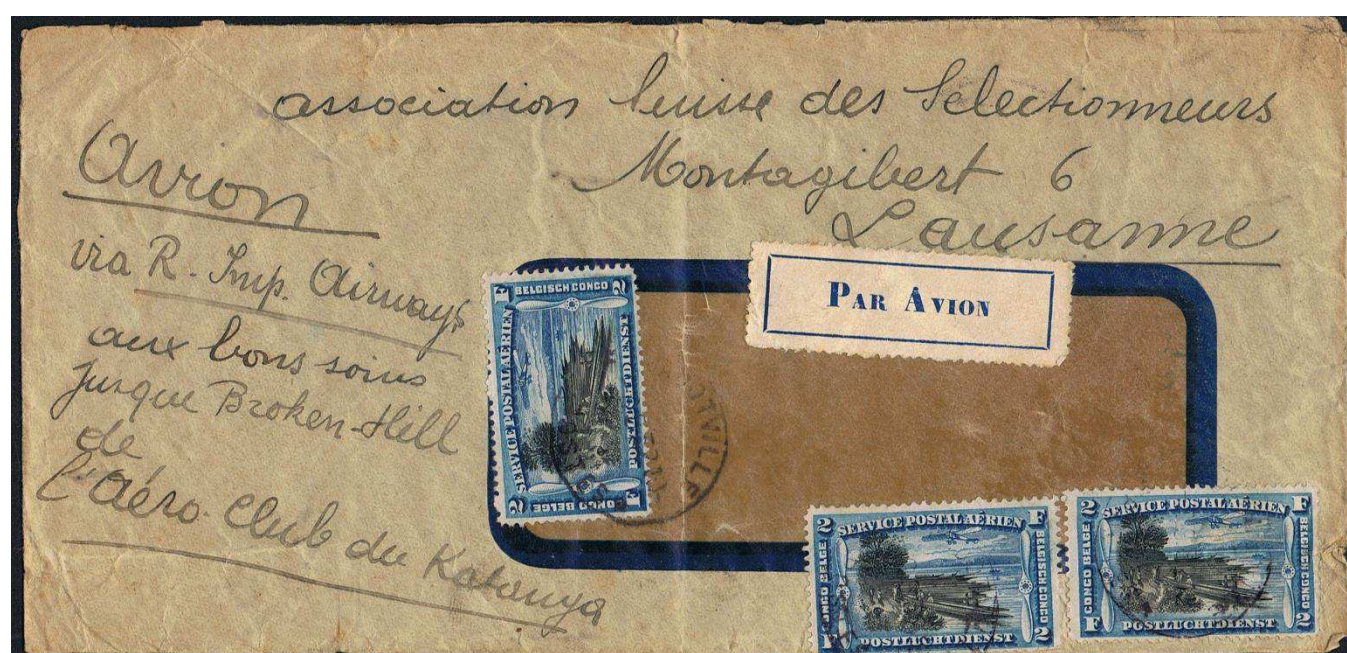 association Suisse des Sélectionneurs
Montagibert 6
Lausanne
Avion
via R. Imp. Airways
aux bons soins
jusque Broken-Hill
de
l'Aéro-Club du Katanga
PAR AVION
BELGISCH CONGO
SERVICE POSTAL AÉRIEN
POSTLUCHTDIENST
CONGO BELGE
2 F
F 2
2 SERVICE POSTAL AÉRIEN F
CONGO BELGE
BELGISCH CONGO
F POSTLUCHTDIENST 2
2 SERVICE POSTAL AÉRIEN F
CONGO BELGE
BELGISCH CONGO
F POSTLUCHTDIENST 2